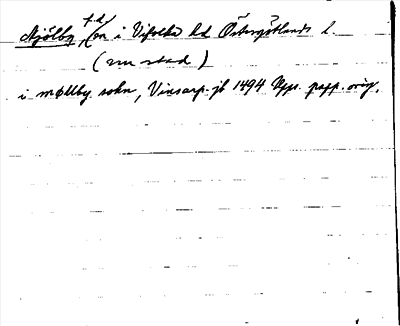 Mjölby f.d. (en i Vifolka hd Östergötlands l.
(nu stad)
i møllby sokn, Vinsarp. jb 1494 Upps. papp. orig.